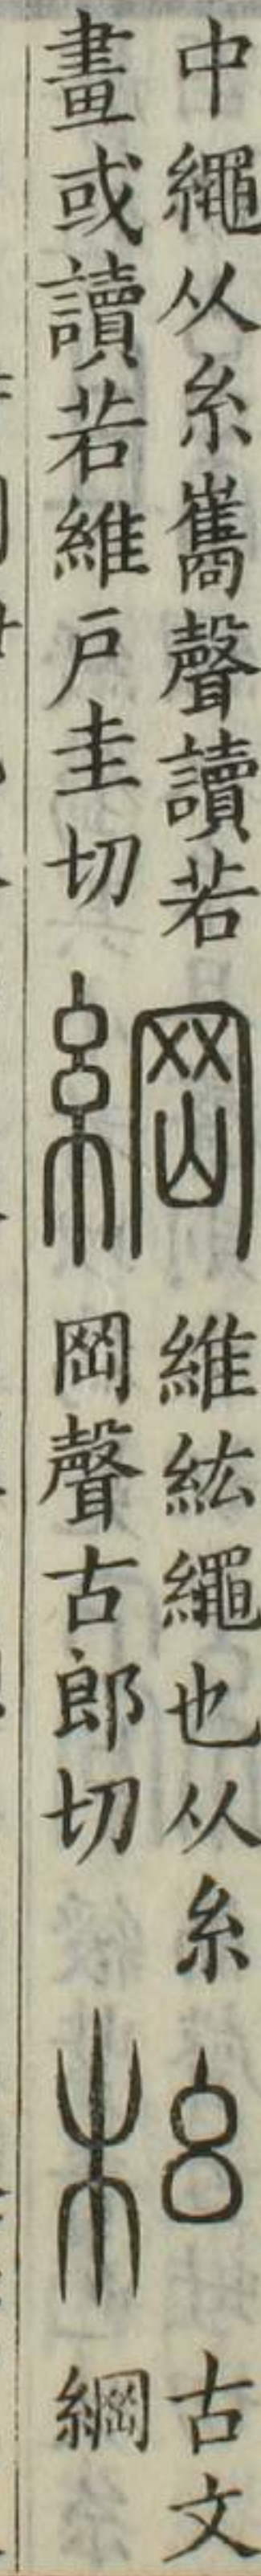 中繩从糸巂聲讀若
畫或讀若維戶圭切
綱
維紘繩也从糸
岡聲古郎切
古文
綱